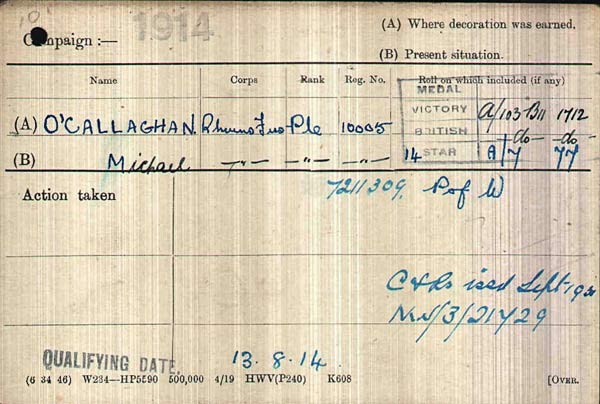 10
1914
(A) Where decoration was earned.
Campaign :—
(B) Present situation.
Name Corps Rank Reg. No. Roll on which included (if any)
MEDAL
(A) O'CALLAGHAN. R Muns Fus Pte 10005 VICTORY A/103 B11 1712
BRITISH -do- -do-
(B) Michael —"— —"— —"— 14 STAR A/7 77
Action taken 7211309. P of W
issd Sept 192
/3/21729
QUALIFYING DATE. 13.8.14.
(6 34 46) W234—HP5590 500,000 4/19 HWV(P240) K608 [OVER.